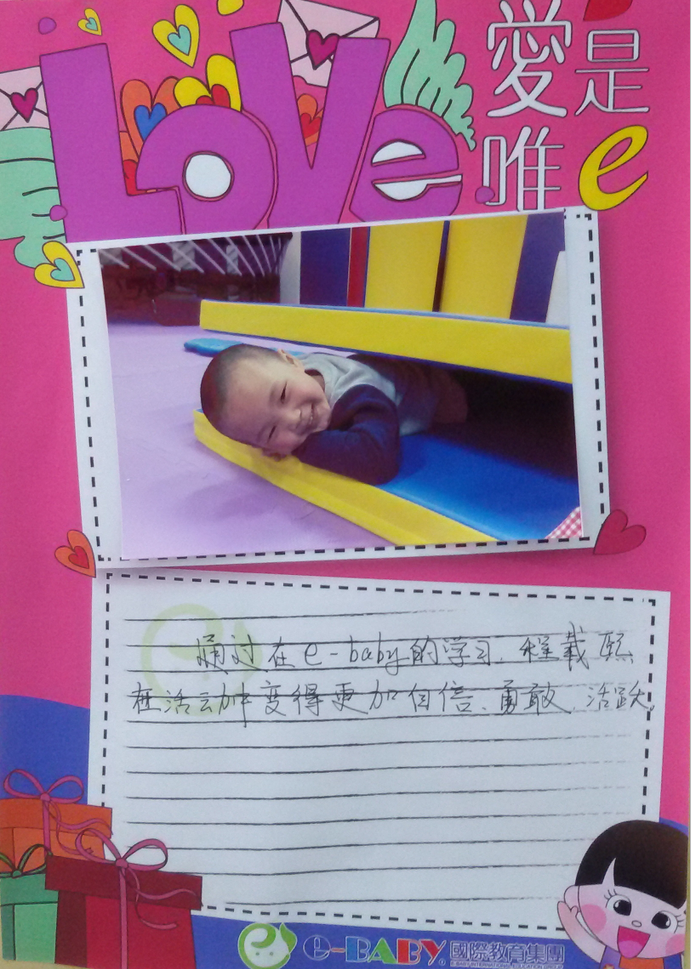 Love
愛是
唯e
通过在e-baby的学习、程载熙
在活动中变得更加自信、勇敢、活跃.
e-BABY 國際教育集團